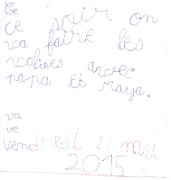 Ce
ce soir on
va faire les
pralines avec
papa et maya.
va
ve
vendredi 22 mai
2015